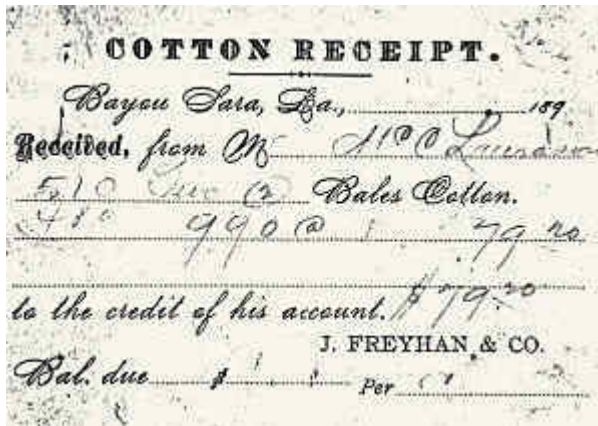 COTTON RECEIPT.
Bayou Sara, La., 189
Received, from M
510 Two (2) Bales Cotton.
480 990 @ 79 20
to the credit of his account. $79.20
J. FREYHAN & CO.
Bal. due $ Per